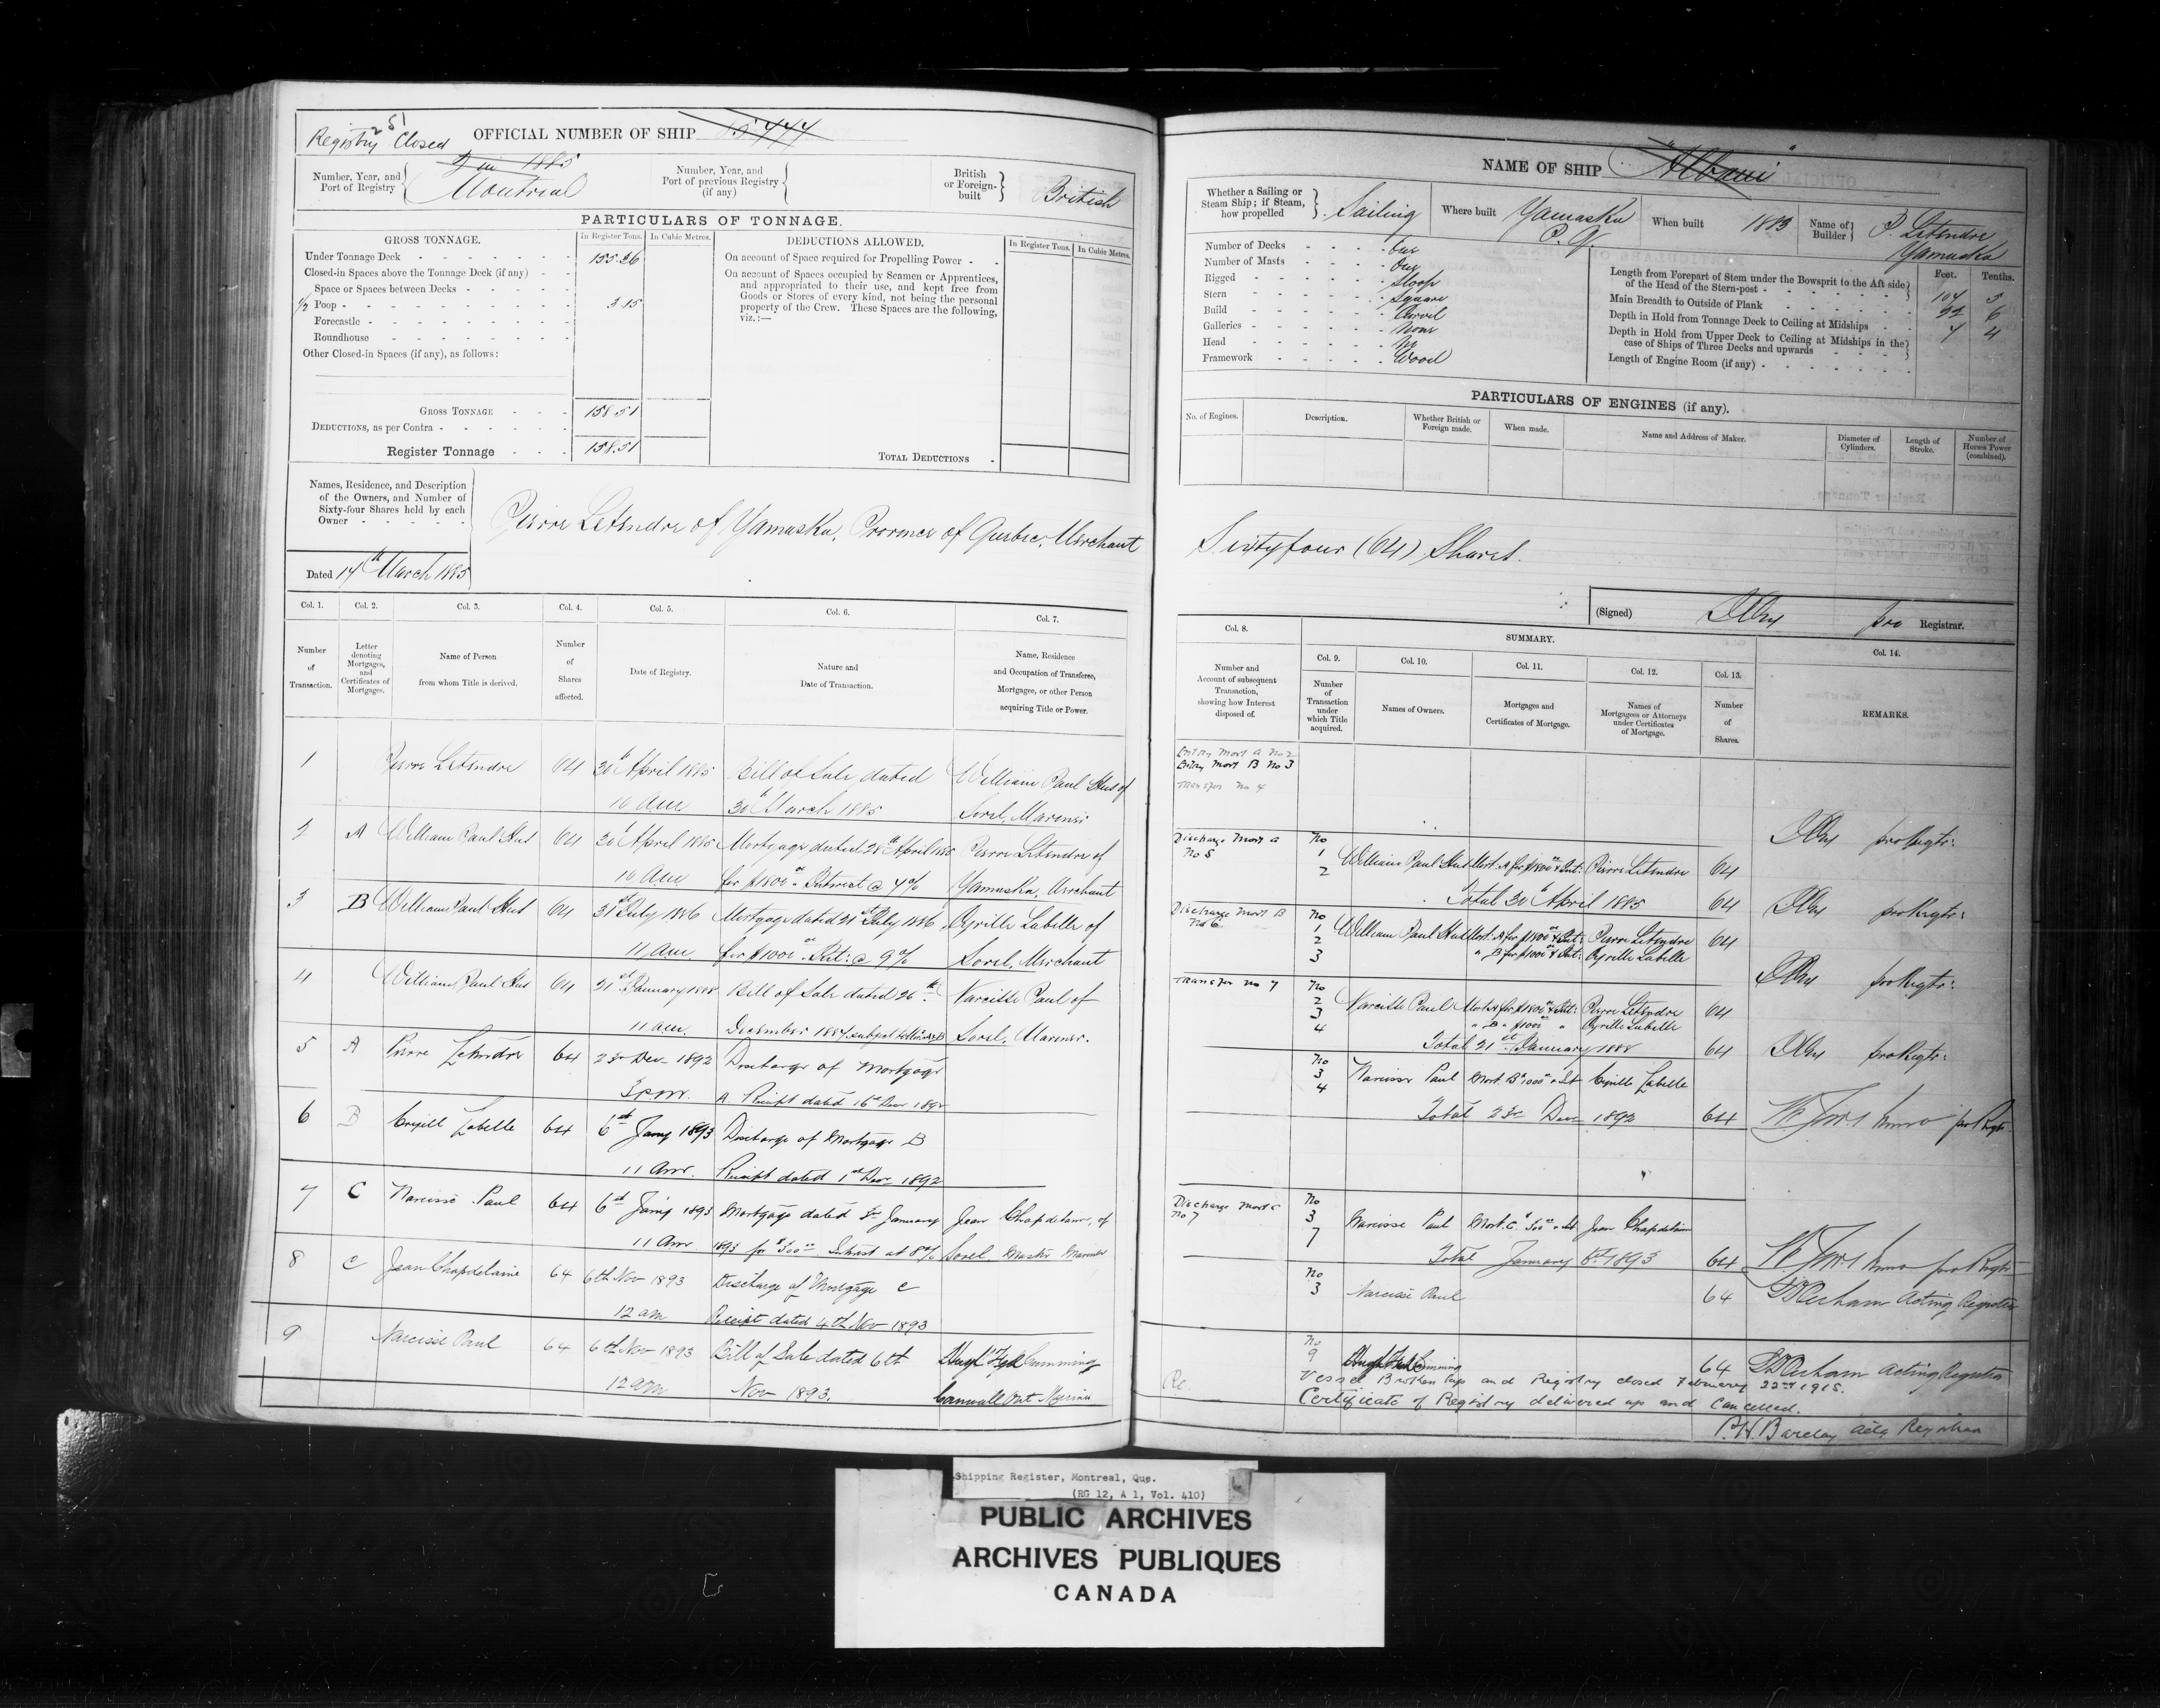 251
Registry Closed
OFFICIAL NUMBER OF SHIP
Number, Year, and Port of Registry
in 1885
Montreal
Number, Year, and Port of previous Registry (if any)
British or Foreign-built
British
PARTICULARS OF TONNAGE.
GROSS TONNAGE.
In Register Tons.
In Cubic Metres.
DEDUCTIONS ALLOWED.
In Register Tons.
In Cubic Metres.
Under Tonnage Deck
155.26
Closed-in Spaces above the Tonnage Deck (if any)
Space or Spaces between Decks
1/2 Poop
3 15
Forecastle
Roundhouse
Other Closed-in Spaces (if any), as follows:
On account of Space required for Propelling Power
On account of Spaces occupied by Seamen or Apprentices,
and appropriated to their use, and kept free from
Goods or Stores of every kind, not being the personal
property of the Crew. These Spaces are the following,
viz.:—
GROSS TONNAGE
158.51
DEDUCTIONS, as per Contra
Register Tonnage
158.51
TOTAL DEDUCTIONS
Names, Residence, and Description
of the Owners, and Number of
Sixty-four Shares held by each
Owner
Pierre Letendre of Yamaska, Province of Quebec, Merchant
Dated 17th March 1885
Col. 1. Col. 2. Col. 3. Col. 4. Col. 5. Col. 6. Col. 7.
Number of Transaction.
Letter denoting Mortgages, and Certificates of Mortgages.
Name of Person from whom Title is derived.
Number of Shares affected.
Date of Registry.
Nature and Date of Transaction.
Name, Residence and Occupation of Transferee, Mortgagee, or other Person acquiring Title or Power.
1 Pierre Letendre 64 30th April 1885 Bill of Sale dated William Paul Hus of
10 am 30th March 1885 Sorel, Mariner
2 A William Paul Hus 64 30th April 1885 Mortgage dated 28th April 1885 Pierre Letendre of
10 am for $1800 Interest @ 7% Yamaska, Merchant
3 B William Paul Hus 64 21st July 1886 Mortgage dated 21st July 1886 Cyrille Labelle of
11 am for $1000 Int: @ 9% Sorel, Merchant
4 William Paul Hus 64 21st January 1888 Bill of Sale dated 26th Narcisse Paul of
11 am. December 1887 subject to Mort A & B Sorel, Mariner.
5 A Pierre Letendre 64 23d Dec 1892 Discharge of Mortgage
3 pm. A Receipt dated 16th Dec 1892
6 B Cyrill Labelle 64 6th Jany 1893 Discharge of Mortgage B
11 am. Receipt dated 1st Dec 1892
7 C Narcisse Paul 64 6th Jany 1893 Mortgage dated 3d January Jean Chapdelaine, of
11 am 1893 for $500 Interest at 8% Sorel Master Mariner
8 C Jean Chapdelaine 64 6th Nov 1893 Discharge of Mortgage C
12 am Receipt dated 4th Nov 1893
9 Narcisse Paul 64 6th Nov 1893 Bill of Sale dated 6th Cumming
12 am Nov 1893. Cornwall Ont
NAME OF SHIP "Albani"
Whether a Sailing or Steam Ship; if Steam, how propelled
Sailing
Where built
Yamaska P. Q.
When built
1883
Name of Builder
P. Letendre
Yamaska
Number of Decks One
Number of Masts One
Rigged Sloop
Stern Square
Build Carvel
Galleries None
Head No
Framework Wood
Feet. Tenths.
Length from Forepart of Stem under the Bowsprit to the Aft side of the Head of the Stern-post 104 5
Main Breadth to Outside of Plank 22 6
Depth in Hold from Tonnage Deck to Ceiling at Midships 7 4
Depth in Hold from Upper Deck to Ceiling at Midships in the case of Ships of Three Decks and upwards
Length of Engine Room (if any)
PARTICULARS OF ENGINES (if any).
No. of Engines.
Description.
Whether British or Foreign made.
When made.
Name and Address of Maker.
Diameter of Cylinders.
Length of Stroke.
Number of Horses Power (combined).
Sixty four (64) Shares.
(Signed) pro Registrar.
Col. 8.
SUMMARY.
Col. 9. Col. 10. Col. 11. Col. 12. Col. 13. Col. 14.
Number and Account of subsequent Transaction, showing how Interest disposed of.
Number of Transaction under which Title acquired.
Names of Owners.
Mortgages and Certificates of Mortgage.
Names of Mortgagees or Attorneys under Certificates of Mortgage.
Number of Shares.
REMARKS.
Entry Mort A No 2
Entry Mort B No 3
Transfer No 4
pro Regtr:
Discharge Mort A No 5
No 1 2 William Paul Hus Mort. A for $1800 & Int: Pierre Letendre 64
Total 30th April 1885 64 pro Regtr:
Discharge Mort B No 6
No 1 2 3 William Paul Hus Mort. A for $1800 & Int: Pierre Letendre 64
" B for $1000 & Int: Cyrille Labelle
pro Regtr:
Transfer No 7
No 2 3 4 Narcisse Paul Mort A for $1800 & Int: Pierre Letendre 64
" B " $1000 " Cyrille Labelle
Total 21st January 1888 64 pro Regtr:
No 3 4 Narcisse Paul Mort. B $1000 & Int Cyrille Labelle
Total 23d Dec 1892 64 pro Regtr
Discharge Mort C No 7
No 3 7 Narcisse Paul Mort. C. $500 & Int Jean Chapdelaine
Total January 6th 1893 64 pro Regtr
No 3 Narcisse Paul 64 Acting Registrar
No 9 Cumming 64 Acting Registrar
Re.
Vessel Broken Up and Registry closed February 22nd 1915.
Certificate of Registry delivered up and Cancelled.
P.W. Barclay Actg Registrar
Shipping Register, Montreal, Que.
(RG 12, A 1, Vol. 410)
PUBLIC ARCHIVES
ARCHIVES PUBLIQUES
CANADA